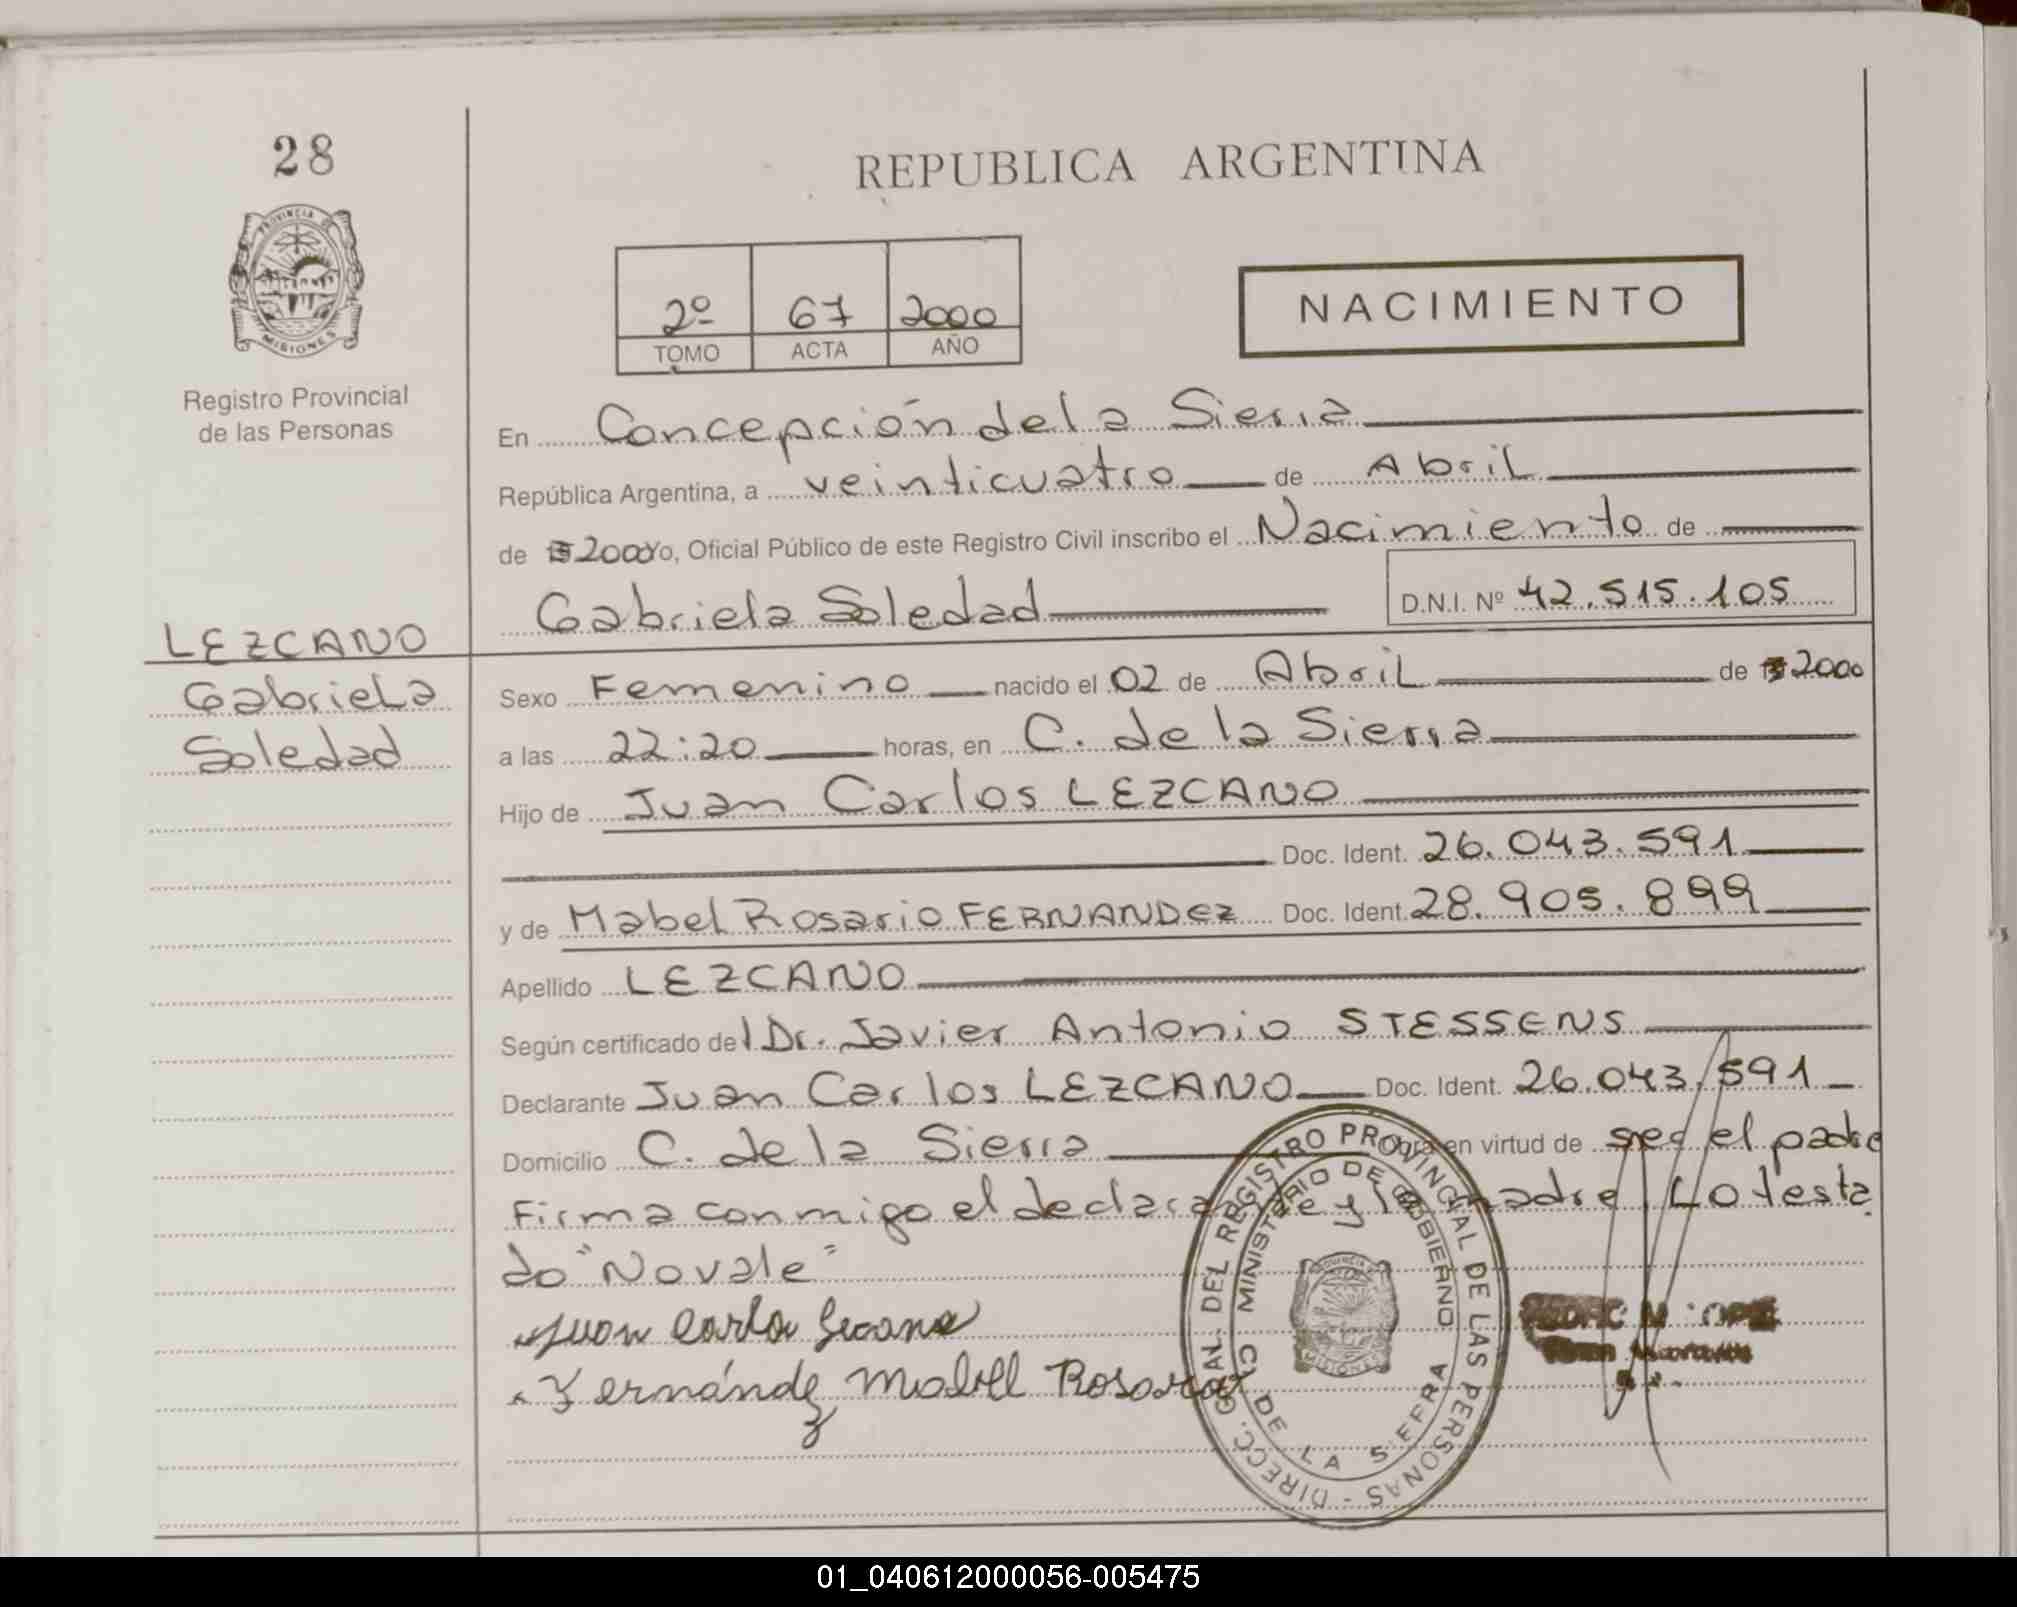 28
REPUBLICA ARGENTINA
PROVINCIA DE
MISIONES
2º 67 2000
TOMO ACTA AÑO
NACIMIENTO
Registro Provincial
de las Personas
En Concepción de la Sierra
República Argentina, a veinticuatro de Abril
de 2000 Yo, Oficial Público de este Registro Civil inscribo el Nacimiento de
Gabriela Soledad D.N.I. Nº 42.515.105
LEZCANO
Gabriela
Soledad
Sexo Femenino nacido el 02 de Abril de 2000
a las 22:20 horas, en C. de la Sierra
Hijo de Juan Carlos LEZCANO
Doc. Ident. 26.043.591
y de Mabel Rosario FERNANDEZ Doc. Ident. 28.905.899
Apellido LEZCANO
Según certificado del Dr. Javier Antonio STESSENS
Declarante Juan Carlos LEZCANO Doc. Ident. 26.043.591
Domicilio C. de la Sierra Obra en virtud de ser el padre
Firma conmigo el declarante y la madre. Lo testa
do "No vale"
Juan Carlos
Fernández Mabell Rosario
DIRECC. GRAL. DEL REGISTRO PROVINCIAL DE LAS PERSONAS -
MINISTERIO DE GOBIERNO
C. DE LA SIERRA
PROVINCIA DE
MISIONES
01_040612000056-005475